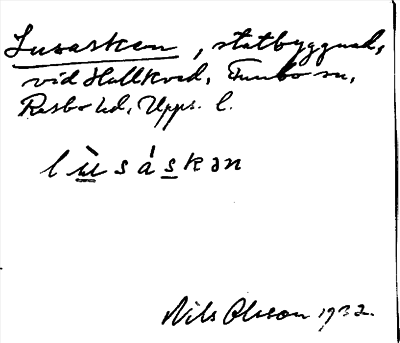 Lusasken, statbyggnad,
vid Hallkved, Funbo sn,
Rasbo hd, Upps. l.
lùsáskən
Nils Olsson 1932.